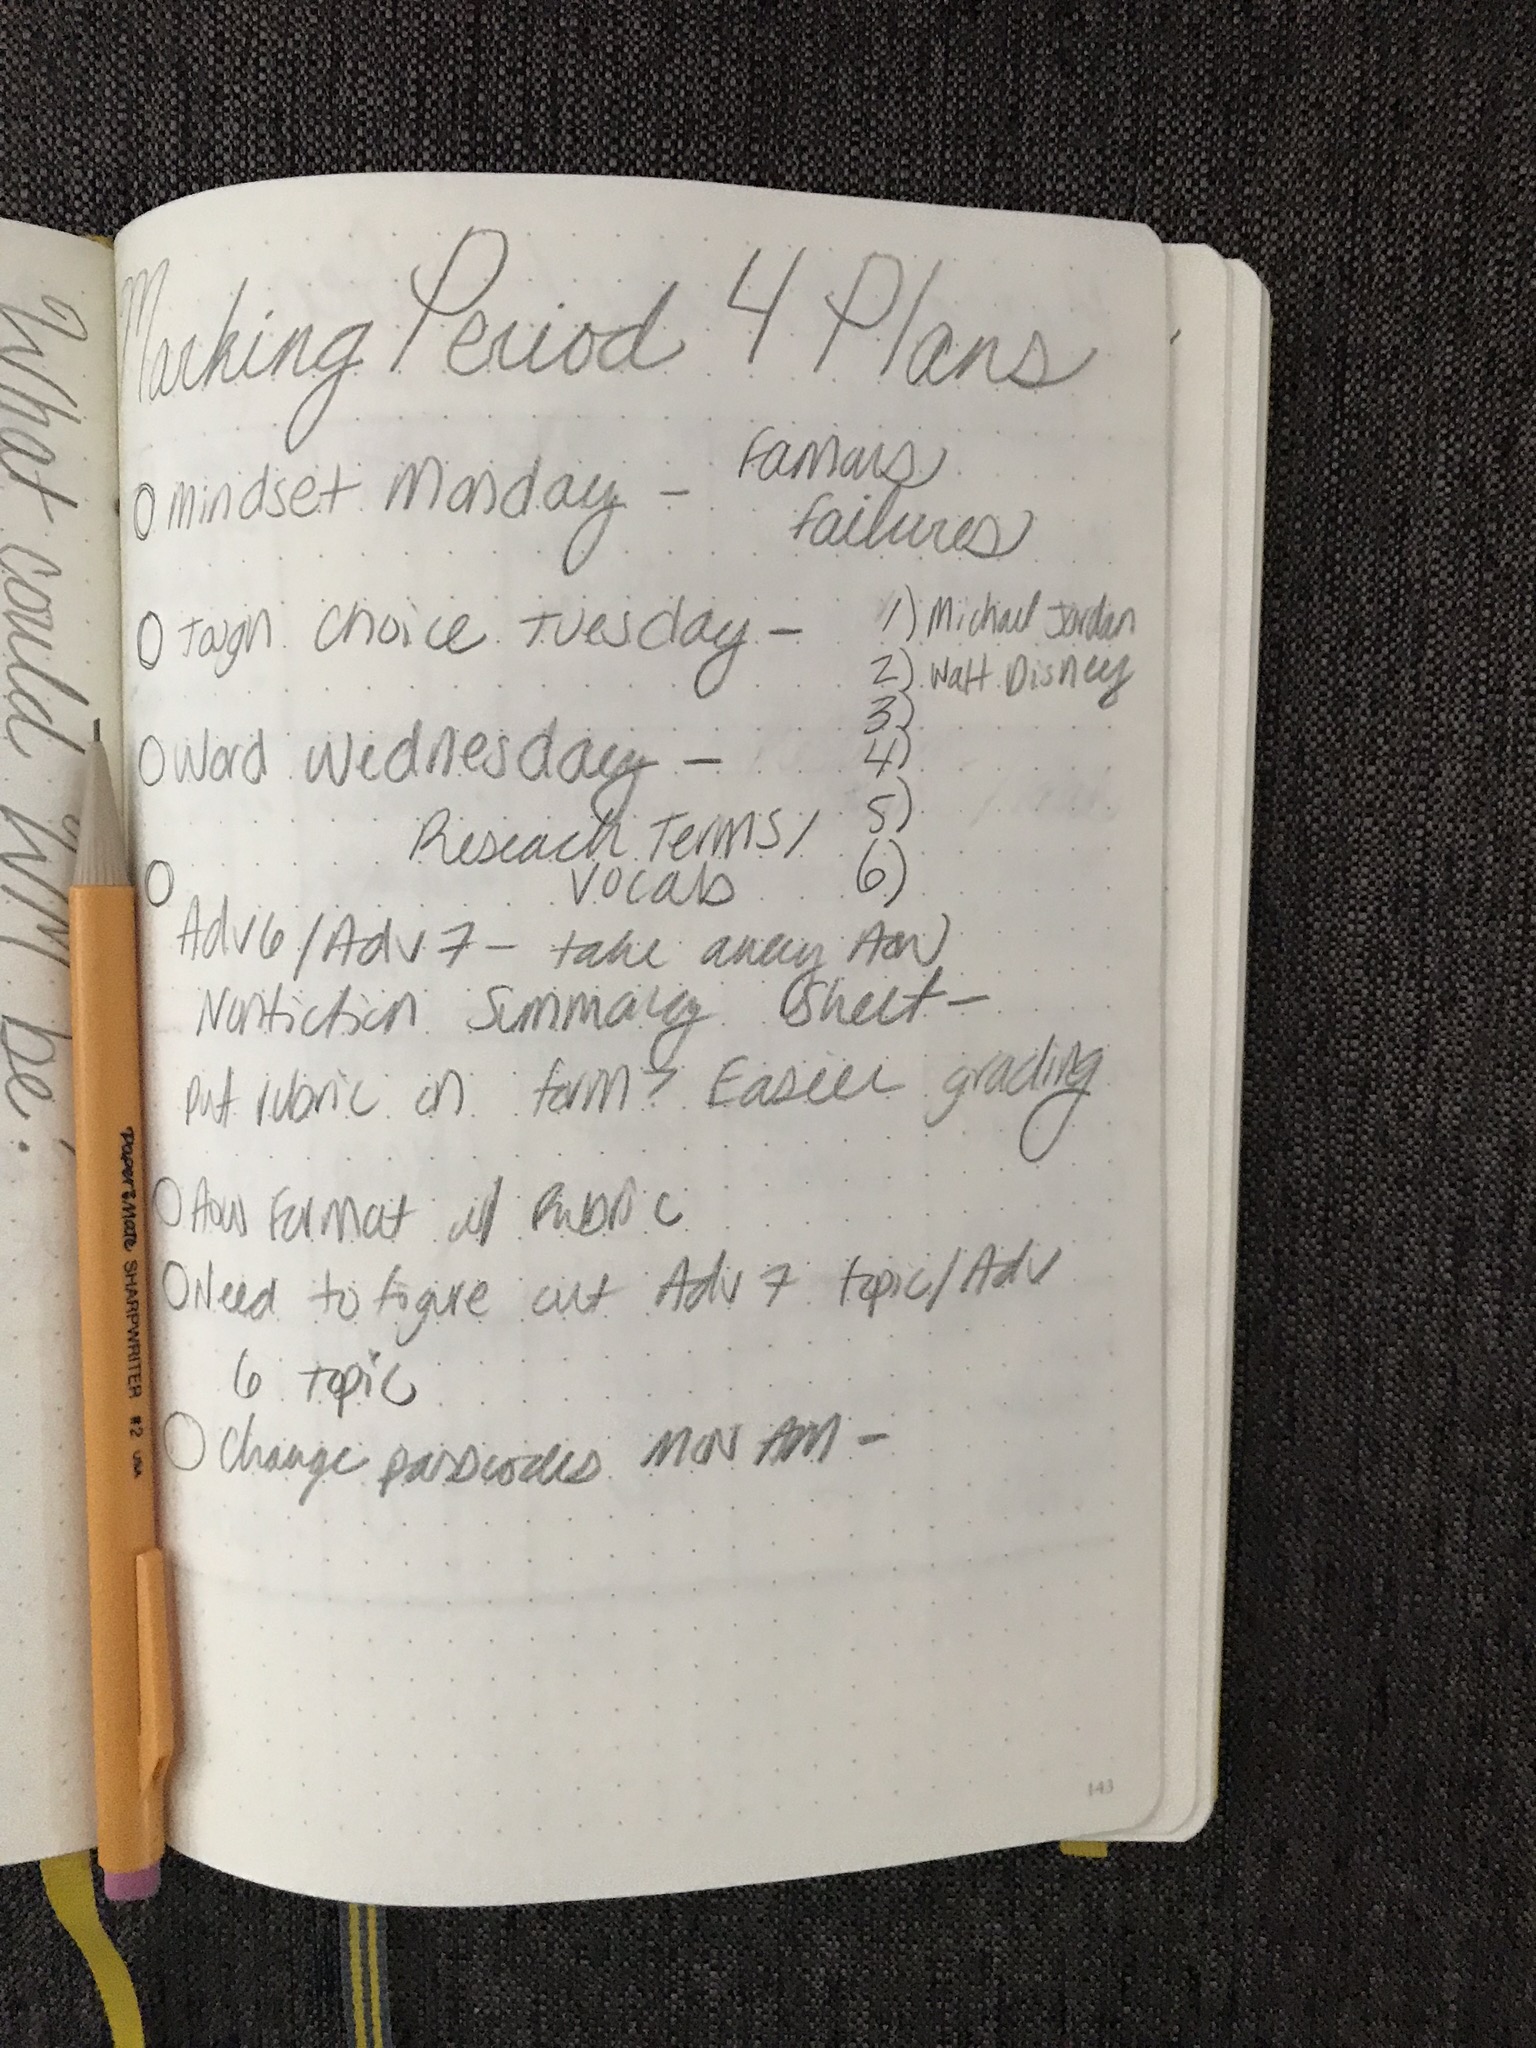 What could WILL be.
Marking Period 4 Plans
Mindset Monday - Famous
Failures
Tough Choice Tuesday -
1) Michael Jordan
2) Walt Disney
3)
4)
5)
6)
Word Wednesday -
Reseach Terms/
Vocab
Adv 6/Adv 7 - take away AoW
Nonfiction Summary Sheet -
put rubric on form? Easier grading
AoW Format w/ Rubric
Need to figure out Adv 7 topic/Adv
6 topic
Change passcodes MON AM -
143
PaperMate SHARPWRITER #2 USA